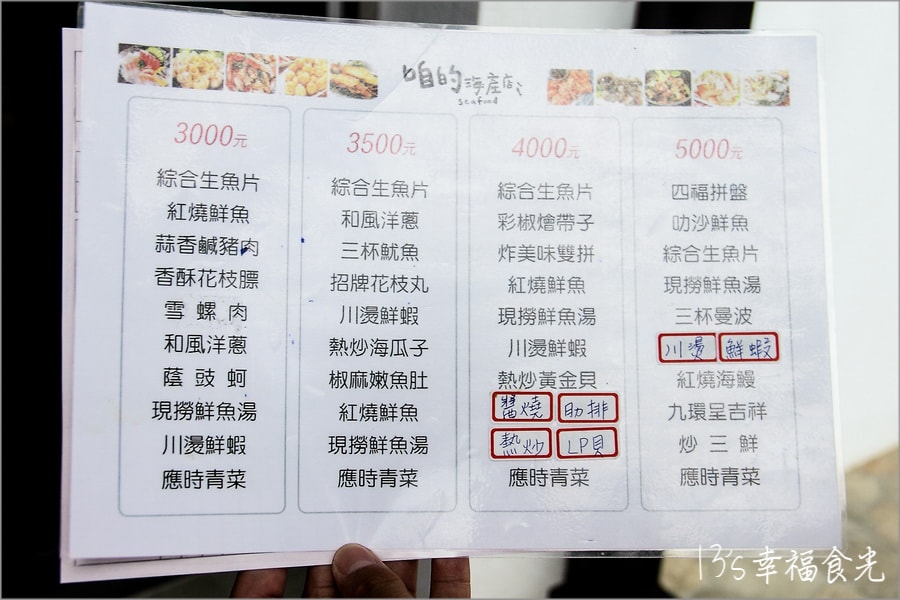 咱的海產店
seafood
3000元
綜合生魚片
紅燒鮮魚
蒜香鹹豬肉
香酥花枝膘
雪螺肉
和風洋蔥
蔭豉蚵
現撈鮮魚湯
川燙鮮蝦
應時青菜
3500元
綜合生魚片
和風洋蔥
三杯魷魚
招牌花枝丸
川燙鮮蝦
熱炒海瓜子
椒麻嫩魚肚
紅燒鮮魚
現撈鮮魚湯
應時青菜
4000元
綜合生魚片
彩椒燴帶子
炸美味雙拼
紅燒鮮魚
現撈鮮魚湯
川燙鮮蝦
熱炒黃金貝
醬燒 肋排
熱炒 LP貝
應時青菜
5000元
四福拼盤
叻沙鮮魚
綜合生魚片
現撈鮮魚湯
三杯曼波
川燙 鮮蝦
紅燒海鰻
九環呈吉祥
炒三鮮
應時青菜
13's幸福食光